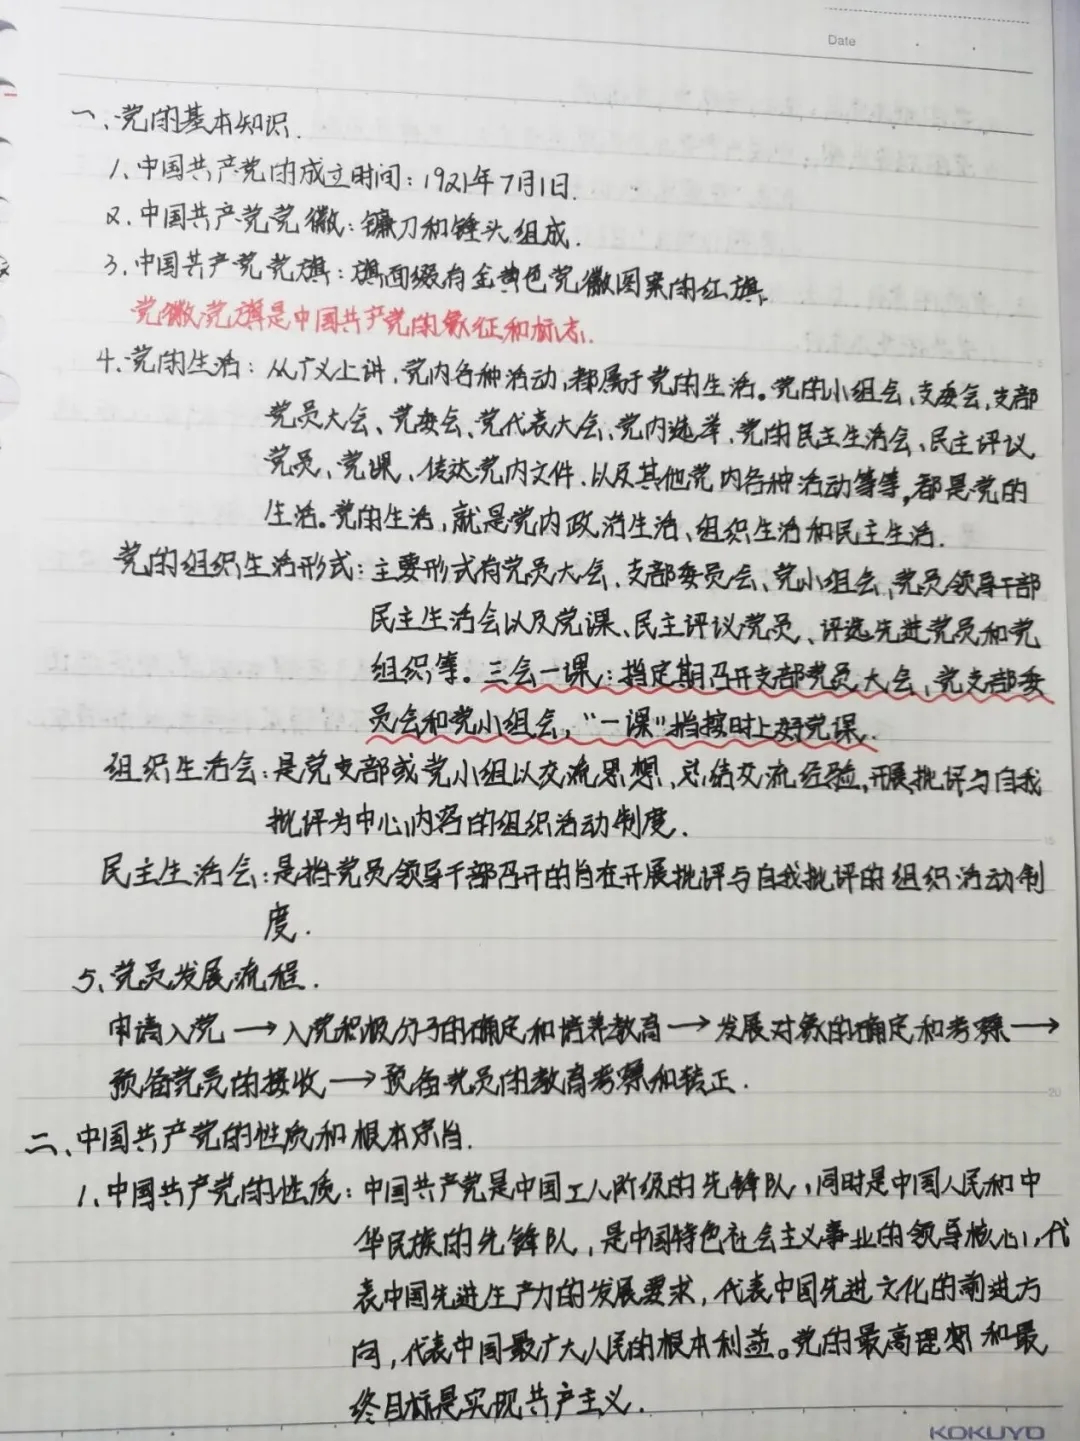 Date
一、党的基本知识.
1、中国共产党的成立时间：1921年7月1日.
2.中国共产党党徽：镰刀和锤头组成.
3、中国共产党党旗：旗面缀有金黄色党徽图案的红旗.
党徽党旗是中国共产党的象征和标志.
4、党的生活：从广义上讲，党内各种活动，都属于党的生活。党的小组会、支委会、支部
党员大会、党委会、党代表大会、党内选举、党的民主生活会、民主评议
党员、党课、传达党内文件.以及其他党内各种活动等等，都是党的
生活。党的生活，就是党内政治生活、组织生活和民主生活.
党的组织生活形式：主要形式有党员大会、支部委员会、党小组会、党员领导干部
民主生活会以及党课、民主评议党员、评选先进党员和党
组织等。三会一课：指定期召开支部党员大会，党支部委
员会和党小组会，“一课”指按时上好党课.
组织生活会：是党支部或党小组以交流思想，总结交流经验，开展批评与自我
批评为中心内容的组织活动制度.
民主生活会：是指党员领导干部召开的旨在开展批评与自我批评的组织活动制
度.
5、党员发展流程.
申请入党→入党积极分子的确定和培养教育→发展对象的确定和考察→
预备党员的接收→预备党员的教育考察和转正.
二、中国共产党的性质和根本宗旨.
1、中国共产党的性质：中国共产党是中国工人阶级的先锋队，同时是中国人民和中
华民族的先锋队，是中国特色社会主义事业的领导核心，代
表中国先进生产力的发展要求，代表中国先进文化的前进方
向，代表中国最广大人民的根本利益。党的最高理想和最
终目标是实现共产主义.
15
20
KOKUYO